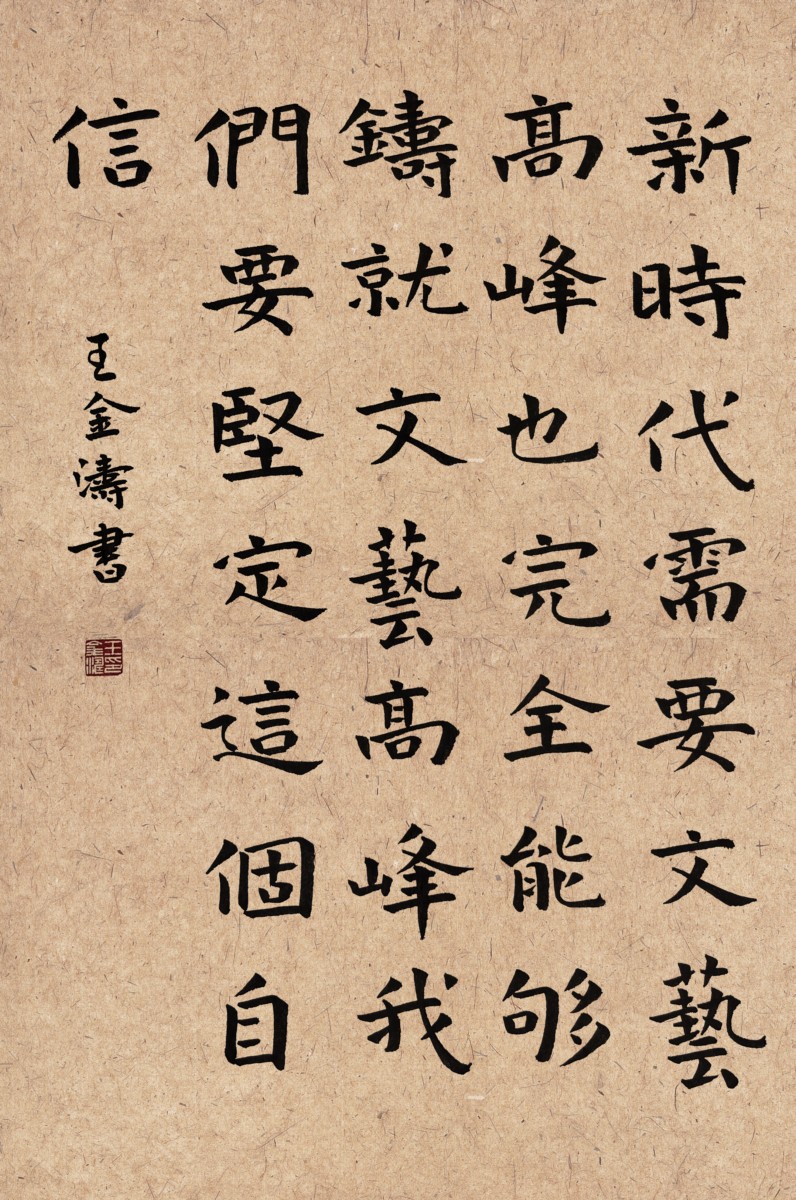 新時代需要文藝
高峰也完全能够
鑄就文藝高峰我
們要堅定這個自
信
王金濤書